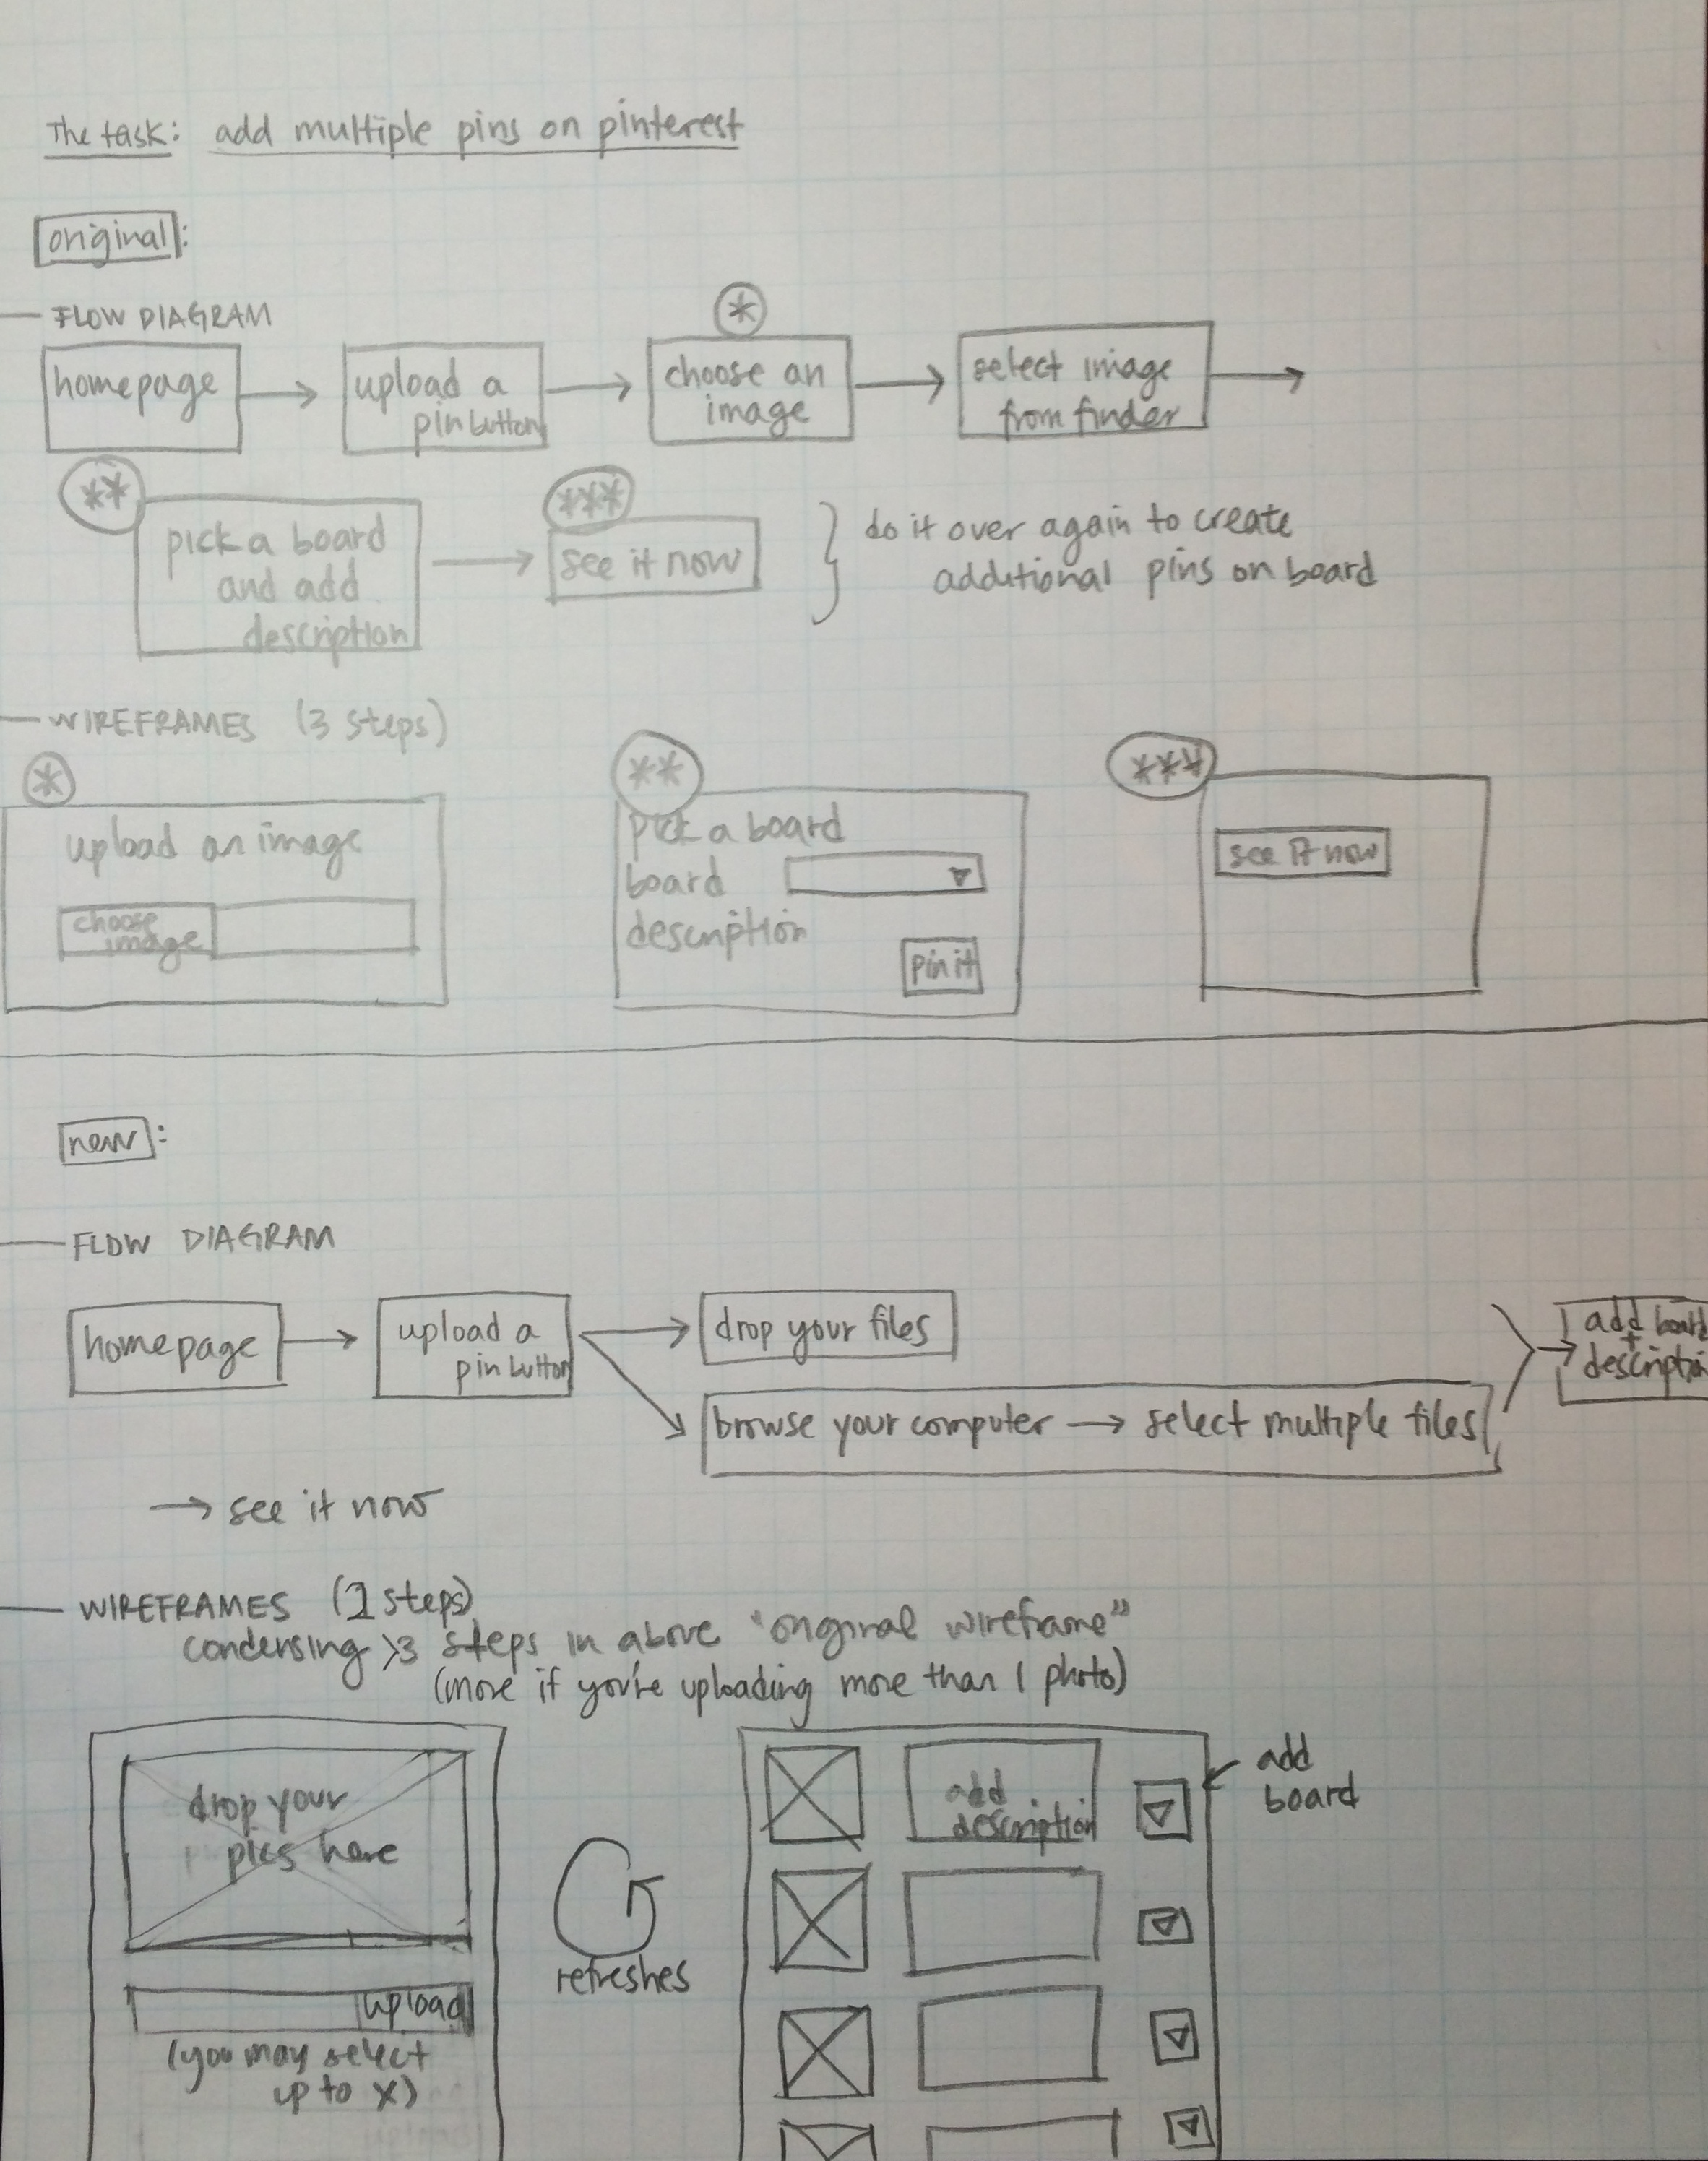 The task: add multiple pins on pinterest
original:
— FLOW DIAGRAM
*
homepage → upload a → choose an → select image →
pin button image from finder
** ***
pick a board → see it now } do it over again to create
and add additional pins on board
description
— WIREFRAMES (3 steps)
* ** ***
upload an image
choose
image
pick a board
board
description
pin it
see it now
new:
— FLOW DIAGRAM
homepage → upload a
pin button
drop your files
browse your computer → select multiple files
→ add board
+
description
→ see it now
— WIREFRAMES (2 steps)
condensing >3 steps in above "original wireframe"
(more if you're uploading more than 1 photo)
drop your
pics here
upload
(you may select
up to x)
refreshes
add
description
add
board